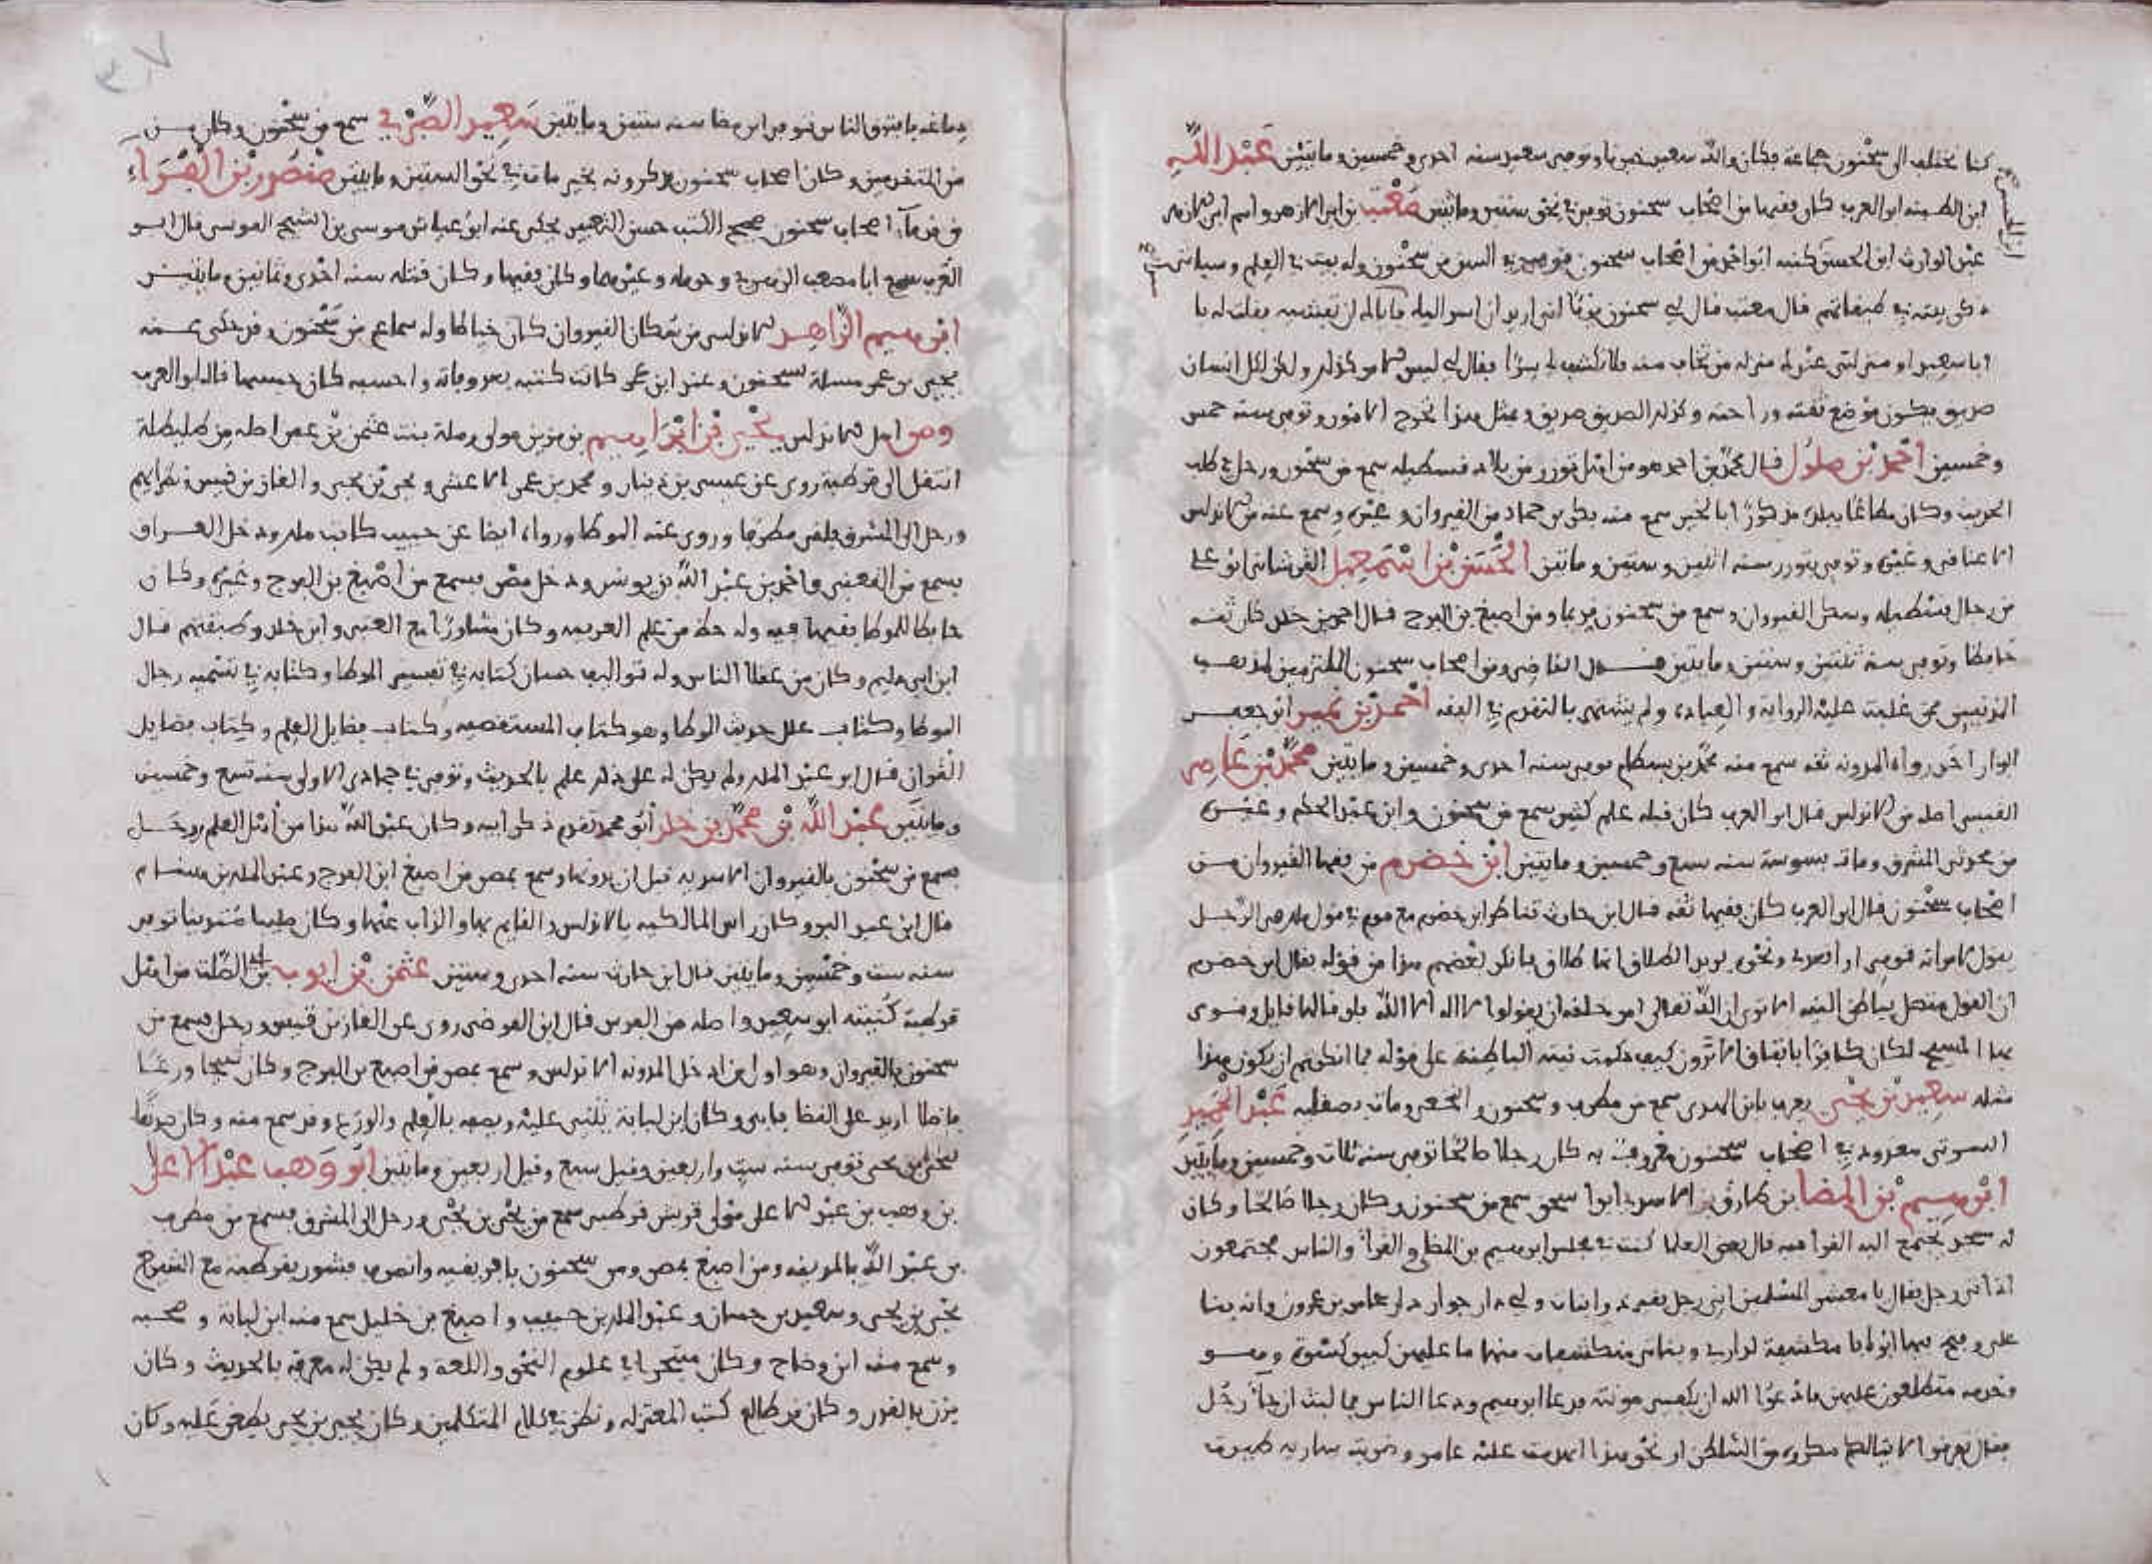 كنا نختلف الى سحنون جماعة فكان والله سعيد خيرنا وتوفي سعيد سنه احدى وخمسين ومايتين عبد الله
ابن الطبنه ابو العرب كان فقيها من اصحاب سحنون توفي في نحو ستين ومايتين معتب بن ابي الازهر واسم ابي الازهر
عبد الوارث ابن الحسن كنيته ابو احمد من اصحاب سحنون فهو في السن من سحنون وله بيت في العلم وسياتي
ذكر بيته في طبقاتهم قال معتب قال لي سحنون يوما اني اريد ان اسر اليك فاياك ان تفشيه فقلت له يا
ابا سعيد او منزلتي عندك منزله من تخاف منه فلا تكشف له سرا فقال لي ليس الامر كذلك ولكن لكل انسان
صديق يكون موضع ثقته وراحته وكذلك الصديق صديق وبمثل هذا تخرج الامور وتوفي سنه خمس
وخمسين احمد بن ملول قال محمد بن احمد هو من اهل توزر من بلاد قسطيله سمع من سحنون ورحل في طلب
الحديث وكان مطاعا ببلده مذكورا بالخير سمع منه بكر بن حماد من القيروان وغيره وسمع عنه من الاندلس
الاعناقي وغيره وتوفي بتوزر سنه اثنين وستين ومايتين الحسن بن اسمعيل القرشاني ابو علي
من رجال قسطيله وسكن القيروان وسمع من سحنون قديما ومن اصبغ بن الفرج قال احمد بن خلد كان ثقه
حافظا وتوفي سنة ثلثين وستين ومايتين قال القاضي ومن اصحاب سحنون الملتزمين لمذهب
المدنيين ممن غلبت عليه الرواية والعبادة ولم يشتهر بالتقدم في الفقه احمد بن نمير ابو جعفر
الوار اخر رواة المدونه ثقه سمع منه محمد بن بسطام توفي سنه احدى وخمسين ومايتين محمد بن عامر
القيسي اصله من الاندلس قال ابو العرب كان قبله علم كثير سمع من سحنون وابن عبد الحكم وغيره
من محدثي المشرق ومات بسوسة سنه سبع وخمسين ومايتين ابن خضرم من فقها القيروان من
اصحاب سحنون قال ابو العرب كان فقيها ثقه قال ابن حارث تناظر ابن خضرم مع قوم في قول ملك في الرجل
يقول لامراته قومي او اقعدي ونحوه يريد الطلاق انها طلاق فانكر بعضهم هذا من قوله فقال ابن خضرم
ان القول متصل بباطن النيه الا ترى ان الله تعالى امر خلقه ان يقولوا لا اله الا الله فلو قالها قايل ونوى
بها المسيح لكان كافرا باتفاق الا ترون كيف حكمت نيته الباطنة على قوله فما انكرتم ان يكون هذا
مثله سعيد بن يحيى يعرف بابن المهدي سمع من مطرف وسحنون والجعفي ومات بصقليه عبد الحميد
السرتي معدود في اصحاب سحنون معروف به كان رجلا صالحا توفي سنه ثلاث وخمسين ومايتين
ابرهيم بن المضا بن طارق بن الاسود ابو اسحق سمع من سحنون وكان رجلا صالحا وكان
له مسجد يجتمع اليه القرا فيه قال بعض العلما كنت في مجلس ابرهيم بن المضا والقرا والناس مجتمعون
اذ اتى رجل فقال يا معشر المسلمين اني رجل فقير ذو بنات ولي دار جوار دار عباس بن عبدون وانه بنا
علي وفتح فيها ابوابا مكشفة لداري وبناتي منكشفات منها ما عليهن كبير كسوة وهو
وخدمه متطلعون عليهن فادعوا الله ان يكفيني مونته فدعا ابرهيم ودعا الناس فما لبث ان جا رجل
فقال تعرضوا
دماغه فافترق الناس توفي ابن مضا سنه ستين ومايتين سعيد الصبري سمع من سحنون وكان من
من المتقدمين وكان اصحاب سحنون يذكرونه بخير مات في نحو الستين ومايتين منصور بن الفراء
من قدماء اصحاب سحنون صحيح الكتب حسن التقييد يحكى عنه ابو عياش موسى بن الشيخ الموسى قال ابو
العرب سمع ابا مصعب الزهري وحرمله وغيرهما وكان فقيها وكان قتله سنه احدى وثمانين ومايتين
ابرهيم الزاهد الاندلسي من سكان القيروان كان خياطا وله سماع من سحنون وقد حكى عنه
يحيى بن عمر مسلة لسحنون وعند ابن عمر كانت كتبه بعد وفاته واحسبه كان حبسها قال ابو العرب
ومن اهل الاندلس يحيى بن ابراهيم بن مزين مولى رملة بنت عثمن بن عفن اصله من طليطلة
انتقل الى قرطبة روى عن عيسى بن دينار ومحمد بن عيسى الاعشى ويحيى بن يحيى والغاز بن قيس ونظرايهم
ورحل الى المشرق فلقي مطرفا وروى عنه الموطا ورواه ايضا عن حبيب كاتب ملك ودخل العراق
فسمع من القعنبي واحمد بن عبد الله بن يونس ودخل مصر فسمع من اصبغ بن الفرج وغيره وكان
حافظا للموطا فقيها فيه وله حظ من علم العربيه وكان مشاورا مع العتبي وابن خلد وطبقتهم قال
ابن ابي دليم وكان من عقلا الناس وله تواليف حسان كتابه في تفسير الموطا وكتابه في تسمية رجال
الموطا وكتاب علل حديث الموطا وهو كتاب المستقصيه وكتاب فضايل العلم وكتاب فضايل
القران قال ابو عبد الملك ولم يكن له على ذلك علم بالحديث وتوفي في جمادى الاولى سنه تسع وخمسين
ومايتين عبد الله بن محمد بن خلد ابو محمد تقدم ذكر ابيه وكان عبد الله هذا من اهل العلم ورحل
فسمع من سحنون بالقيروان الاسديه قبل ان يدونها وسمع بمصر من اصبغ ابن الفرج وعبد الملك بن هشام
قال ابن عبد البر وكان راس المالكيه بالاندلس والقايم بها والذاب عنها وكان صليبا متدينا توفي
سنه ست وخمسين ومايتين قال ابن حارث سنه احدى وستين عثمن بن ايوب بن ابي الصلت من اهل
قرطبة كنيته ابو سعيد واصله من الفرس قال ابن الفرضي روى عن الغاز بن قيس ورحل فسمع من
سحنون بالقيروان وهو اول من ادخل المدونه الاندلس وسمع بمصر من اصبغ بن الفرج وكان شيخا ورعا
فاضلا اريد على القضا فابى وكان ابن لبابة يثني عليه ويصفه بالعلم والورع وقد سمع منه وكان صديقا
ليحيى بن يحيى توفي سنه ست واربعين وقيل سبع وقيل اربعين ومايتين ابو وهب عبد الاعلى
بن وهب بن عبد الاعلى مولى قريش قرطبي سمع من يحيى بن يحيى ورحل الى المشرق فسمع من مطرف
بن عبد الله بالمدينه ومن اصبغ بمصر ومن سحنون بافريقيه وانصرف فشوور بقرطبة مع الشيوخ
يحيى بن يحيى وسعيد بن حسان وعبد الملك بن حبيب واصبغ بن خليل سمع منه ابن لبابة وصحبه
وسمع منه ابن وضاح وكان متبحرا في علوم النحو واللغة ولم يكن له معرفه بالحديث وكان
يزن بالقدر وكان قد طالع كتب المعتزله ونظر في كلام المتكلمين وكان يحيى بن يحيى يطعن عليه وكان